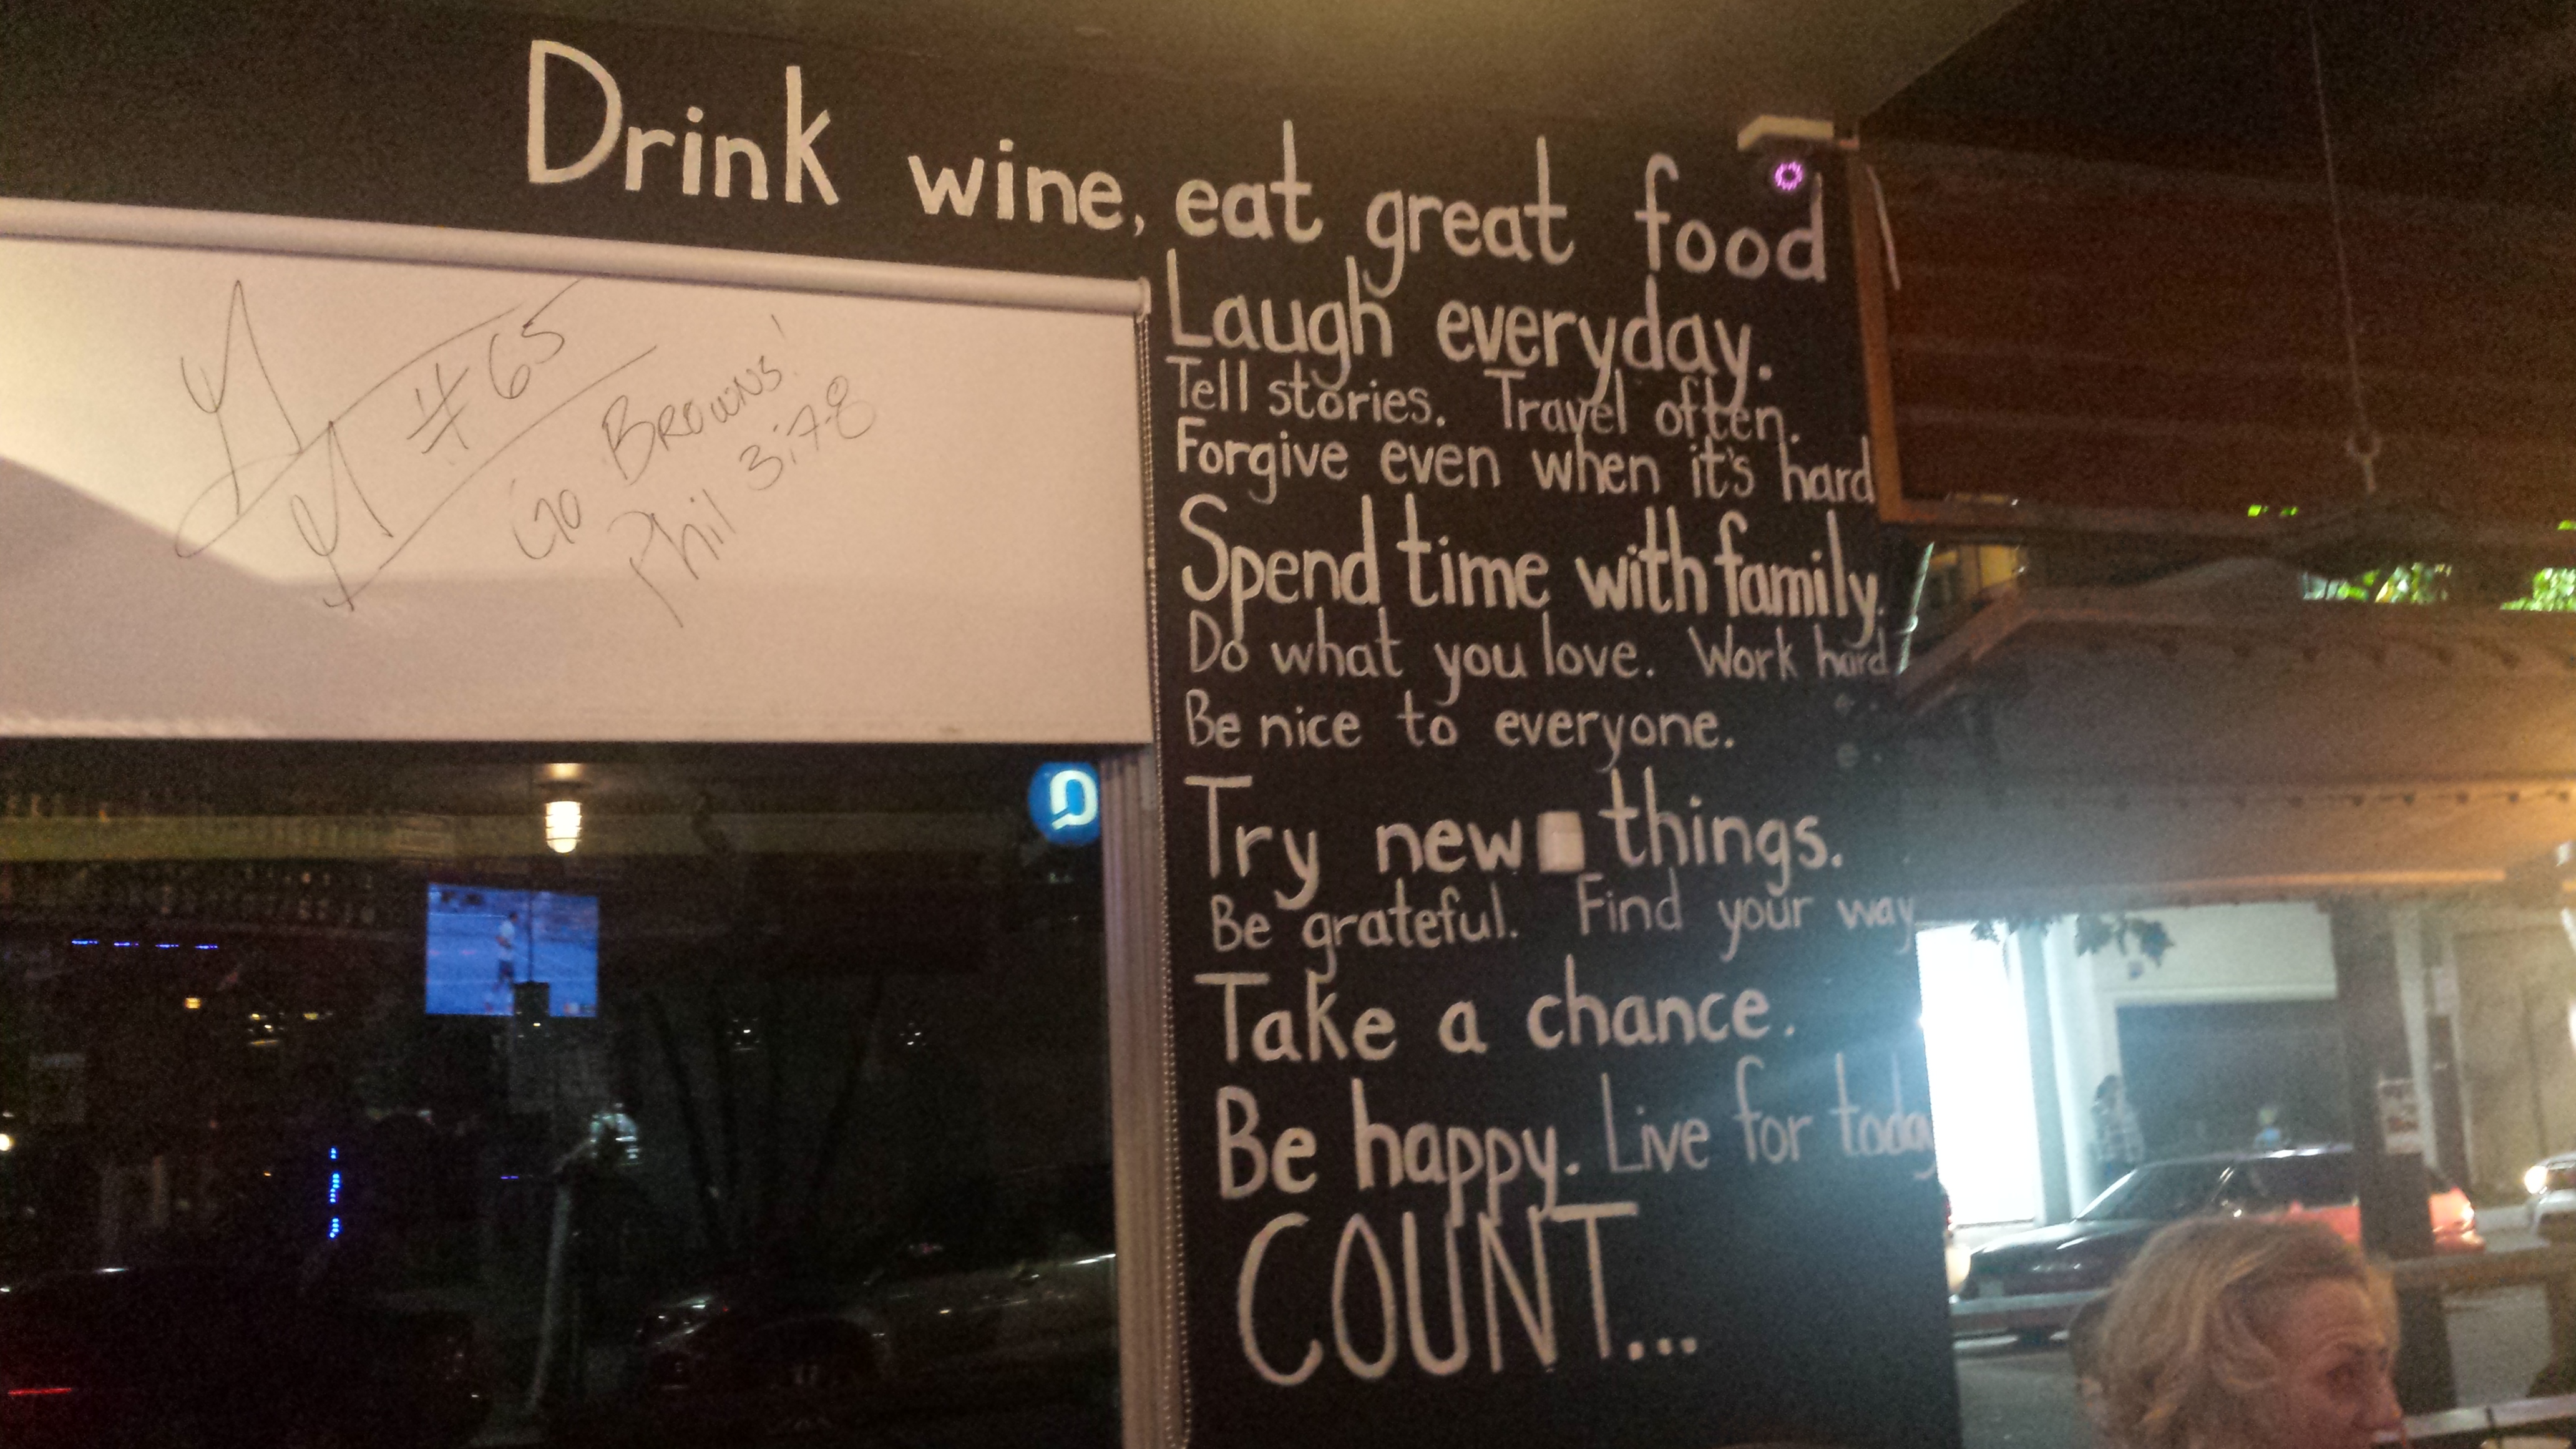 Drink wine, eat great food
Laugh everyday.
Tell stories. Travel often.
Forgive even when it's hard
Spend time with family.
Do what you love. Work hard
Be nice to everyone.
Try new things.
Be grateful. Find your way
Take a chance.
Be happy. Live for today
COUNT...
#65
Go Browns!
Phil 3:7-8